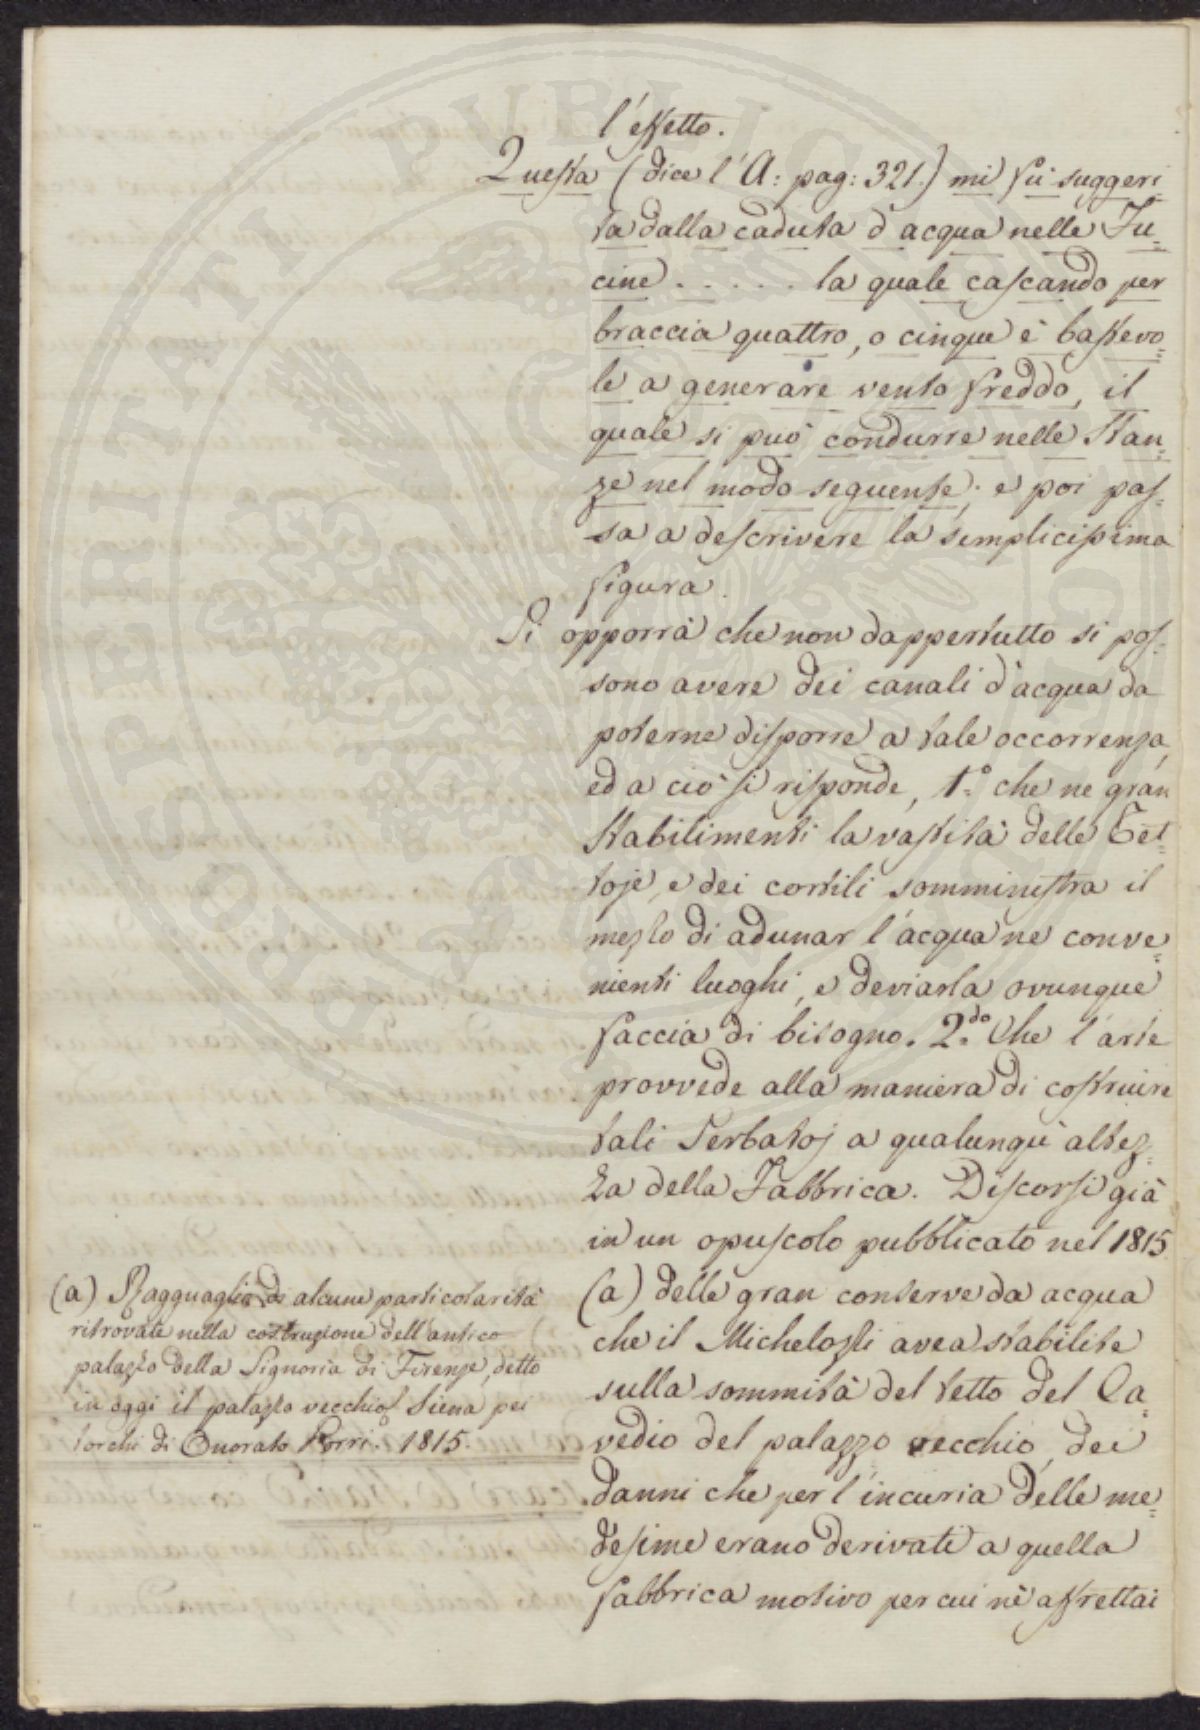 l'effetto.
Questa (dice l'A: pag: 321.) mi fù suggeri
ta dalla caduta d'acqua nelle Fu=
cine . . . . . la quale cascando per
braccia quattro, o cinque è bastevo=
le a generare vento freddo, il
quale si può condurre nelle Stan=
ze nel modo seguente; e poi pas=
sa a descrivere la semplicissima
figura.
Si opporrà che non dappertutto si pos=
sono avere dei canali d'acqua da
poterne disporre a tale occorrenza,
ed a ciò si risponde, 1.° che ne gran
Stabilimenti la vastità delle Tet=
toje, e dei cortili somministra il
mezzo di adunar l'acqua ne conve=
nienti luoghi, e deviarla ovunque
faccia di bisogno. 2.do Che l'arte
provvede alla maniera di costruire
tali Serbatoj a qualunqu' altez=
za della Fabbrica. Discorsi già
in un opuscolo pubblicato nel 1815
(a) delle gran conserve da acqua
che il Michelozzi avea stabilite
sulla sommità del tetto del Ca=
vedio del palazzo vecchio, dei
danni che per l'incuria delle me=
desime erano derivati a quella
fabbrica motivo per cui nè affrettai
(a) Ragguaglio di alcune particolarità
ritrovate nella costruzione dell'antico
palazzo della Signoria di Firenze, detto
in oggi il palazzo vecchio. Siena pei
torchi di Onorato Porri. 1815.
PROSPERITATI PUBLICAE